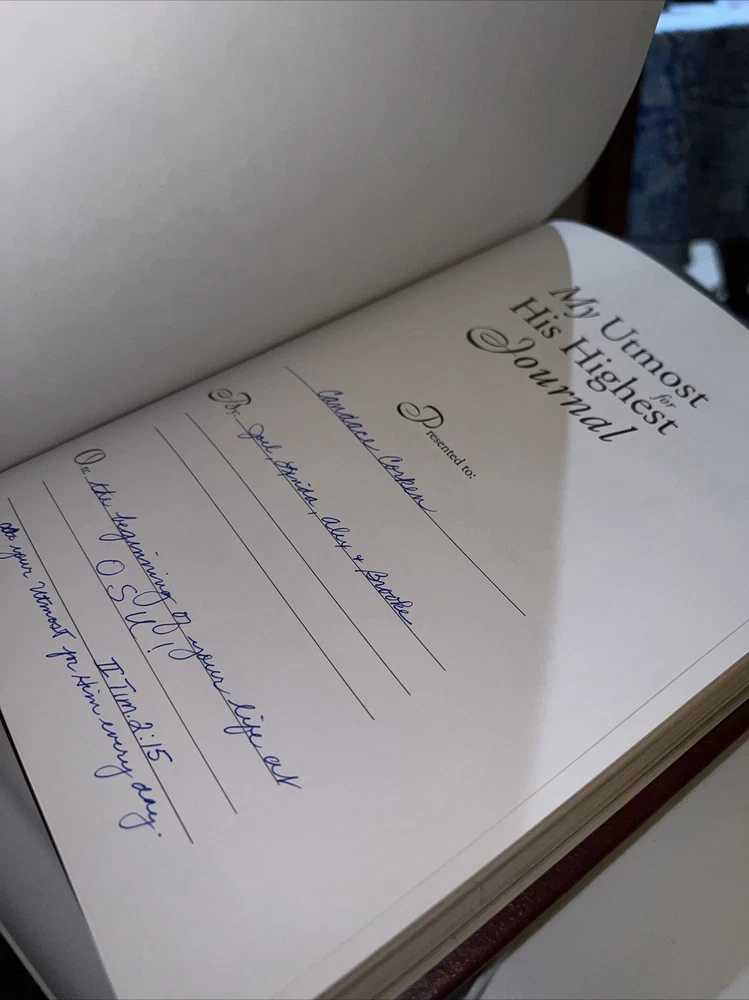 My Utmost
for
His Highest
Journal
Presented to:
Candace Corken
By: Joel, Lynda, Alex & Brooke
On the beginning of your life at
OSU!
II Tim. 2:15
your utmost for Him every day.